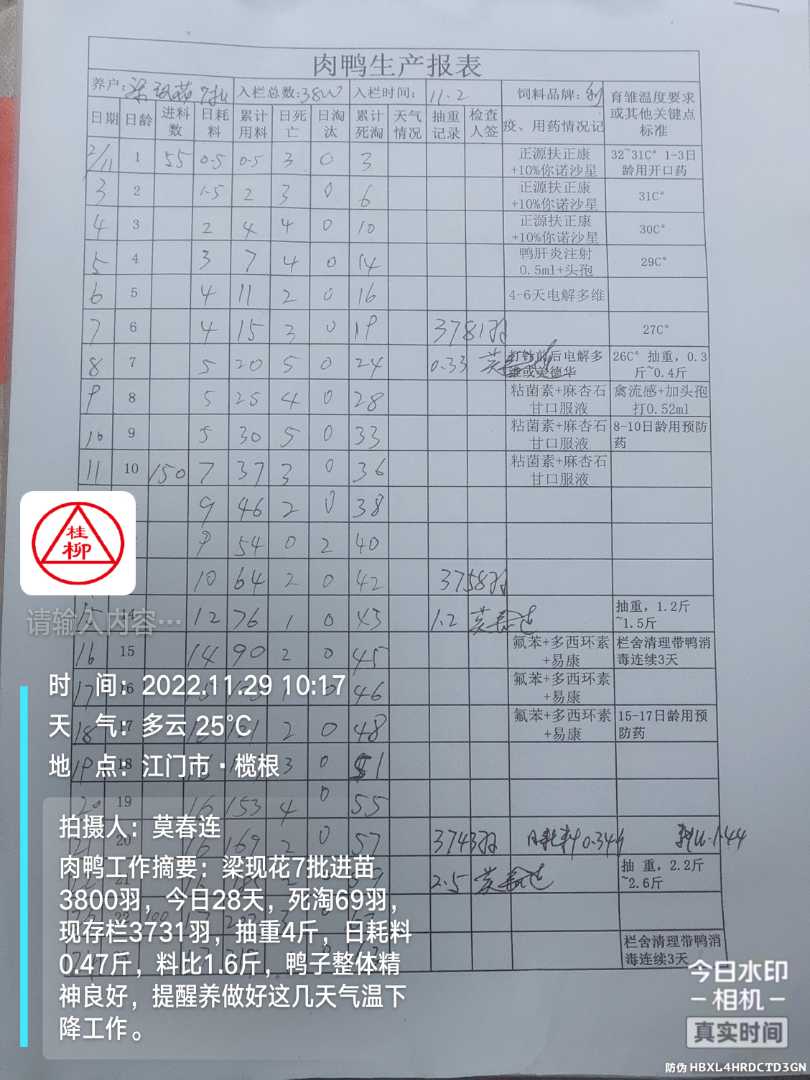 肉鸭生产报表
养户: 梁现花7批 入栏总数:3800 入栏时间: 11.2 饲料品牌: 育雏温度要求或其他关键点标准
日期 日龄 进料数 日耗料 累计用料 日死亡 日淘汰 累计死淘 天气情况 抽重记录 检查人签 疫、用药情况记
2/11 1 55 0.5 0.5 3 0 3 正源扶正康+10%你诺沙星 32~31C° 1-3日龄用开口药
3 2 1.5 2 3 0 6 正源扶正康+10%你诺沙星 31C°
4 3 2 4 4 0 10 正源扶正康+10%你诺沙星 30C°
5 4 3 7 4 0 14 鸭肝炎注射0.5ml+头孢 29C°
6 5 4 11 2 0 16 4-6天电解多维
7 6 4 15 3 0 19 3781羽 27C°
8 7 5 20 5 0 24 0.33 莫春连 打针前后电解多维或英德华 26C° 抽重,0.3斤~0.4斤
9 8 5 25 4 0 28 粘菌素+麻杏石甘口服液 禽流感+加头孢打0.52ml
10 9 5 30 5 0 33 粘菌素+麻杏石甘口服液 8-10日龄用预防药
11 10 150 7 37 3 0 36 粘菌素+麻杏石甘口服液
9 46 2 0 38
9 54 0 2 40
10 64 2 0 42 3758羽
15 14 12 76 1 0 43 1.2 莫春连 抽重,1.2斤~1.5斤
16 15 14 90 2 0 45 氟苯+多西环素+易康 栏舍清理带鸭消毒连续3天
17 16 46 氟苯+多西环素+易康
18 17 2 0 48 氟苯+多西环素+易康 15-17日龄用预防药
19 18 3 0 51
20 19 16 153 4 0 55
21 20 16 169 2 0 57 3743羽 日耗料0.346 料比1.44
21 2.5 莫春连 抽 重,2.2斤~2.6斤
22
栏舍清理带鸭消毒连续3天
桂柳
请输入内容…
时 间: 2022.11.29 10:17
天 气: 多云 25℃
地 点: 江门市·榄根
拍摄人: 莫春连
肉鸭工作摘要: 梁现花7批进苗
3800羽, 今日28天, 死淘69羽,
现存栏3731羽, 抽重4斤, 日耗料
0.47斤, 料比1.6斤, 鸭子整体精
神良好, 提醒养做好这几天气温下
降工作。
今日水印
相机
真实时间
防伪 HBXL4HRDCTD3GN